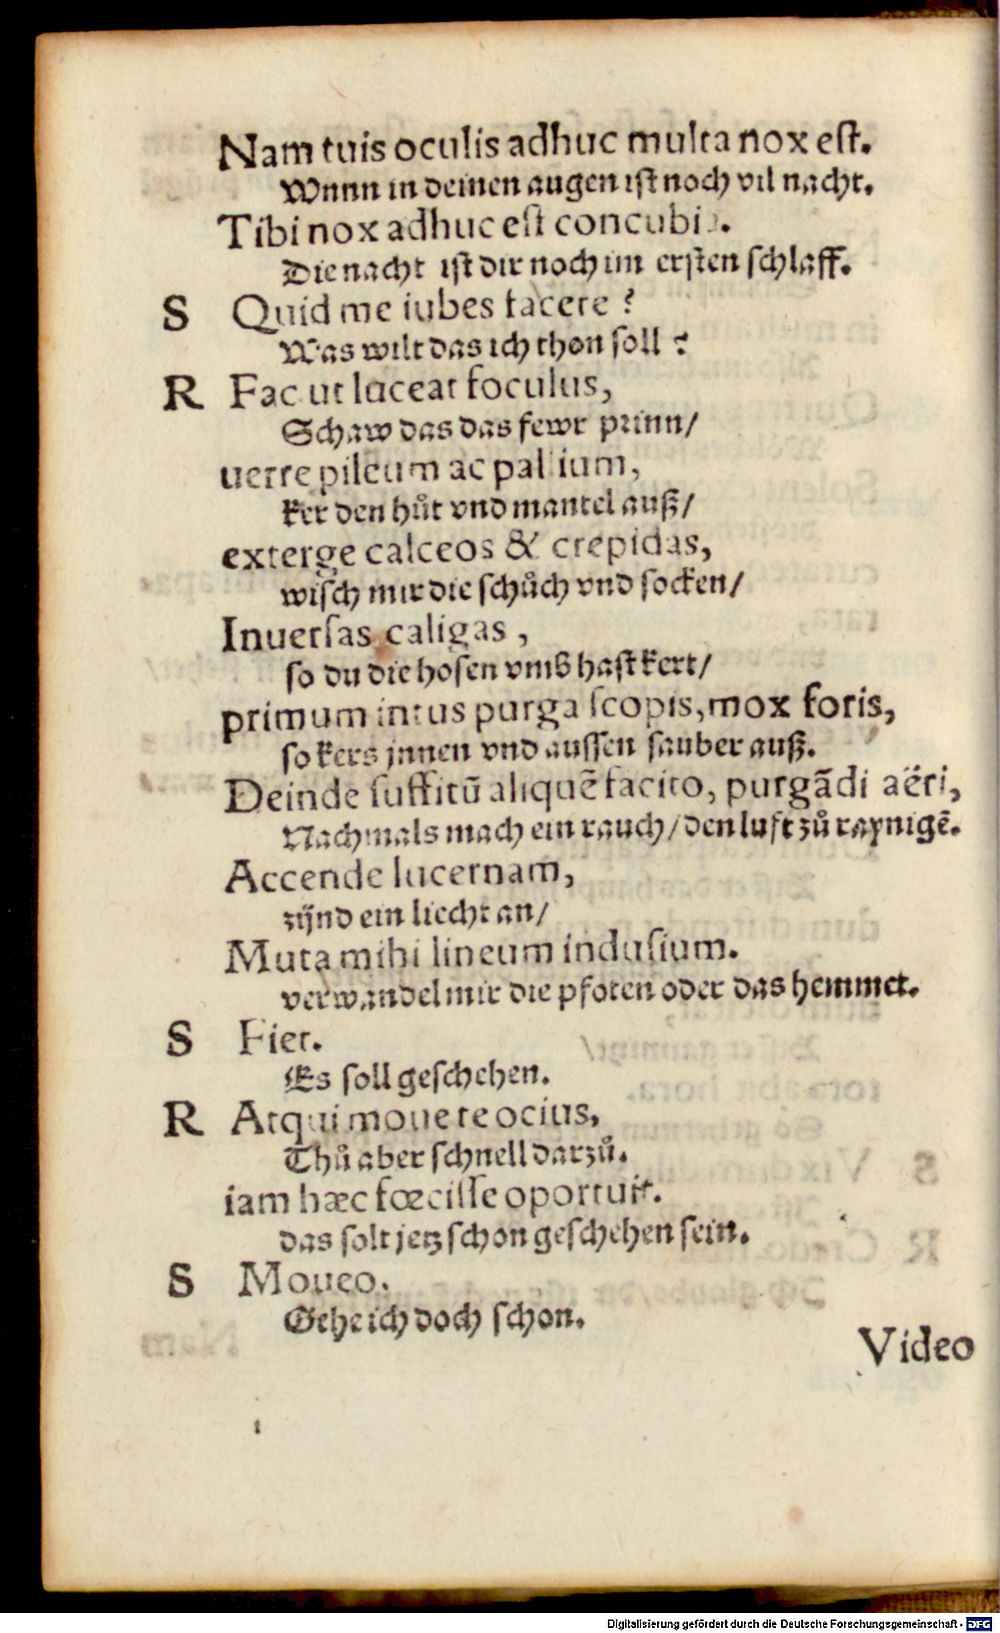 Nam tuis oculis adhuc multa nox est.
Wnnn in deinen augen ist noch vil nacht.
Tibi nox adhuc est concubia.
Die nacht ist dir noch im ersten schlaff.
S Quid me iubes facere ?
Was wilt das ich thon soll ?
R Fac ut luceat foculus,
Schaw das das fewr prinn/
uerre pileum ac pallium,
ker den hůt vnd mantel auß/
exterge calceos & crepidas,
wisch mir die schůch vnd socken/
Inuersas caligas ,
so du die hosen vmb hast kert/
primum intus purga scopis, mox foris,
so kers jnnen vnd aussen sauber auß.
Deinde suffitū aliquē facito, purgādi aëri,
Nachmals mach ein rauch/den luft zů raynigē.
Accende lucernam,
zünd ein liecht an/
Muta mihi lineum indusium.
verwandel mir die pfoten oder das hemmet.
S Fiet.
Es soll geschehen.
R Atqui moue te ocius,
Thů aber schnell darzů.
iam hæc fœcisse oportuit.
das solt jetz schon geschehen sein.
S Moueo.
Gehe ich doch schon.
Video
Digitalisierung gefördert durch die Deutsche Forschungsgemeinschaft - DFG